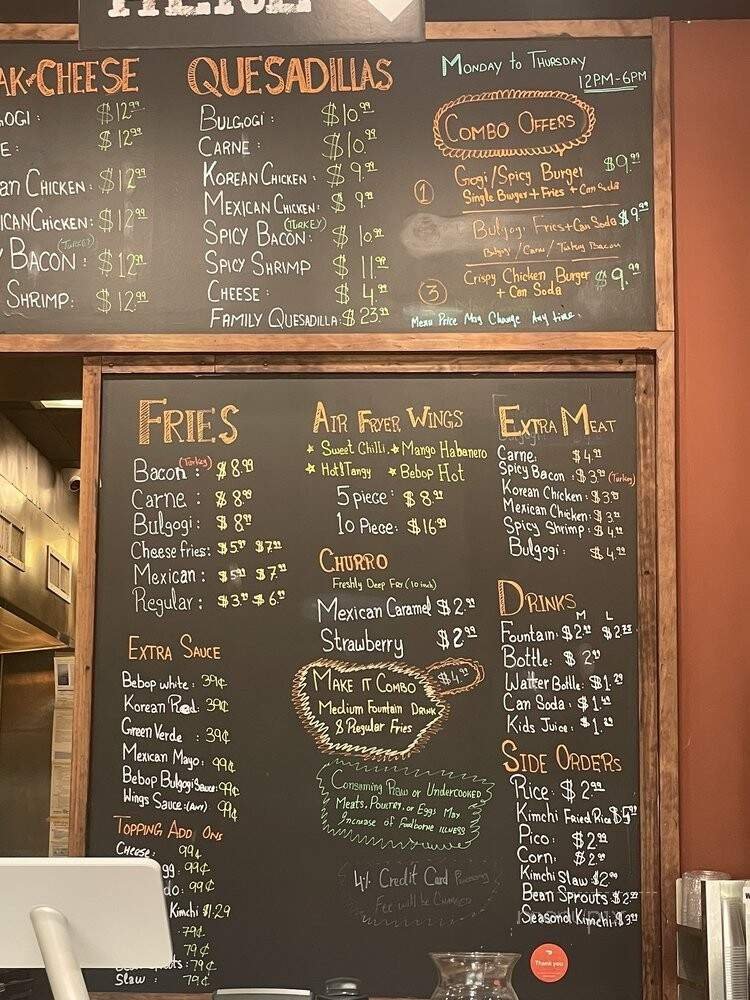 AK-CHEESE
OGI : $12.99
E : $12.99
AN CHICKEN : $12.99
ICAN CHICKEN : $12.99
(TURKEY)
Y BACON : $12.99
SHRIMP : $12.99
QUESADILLAS
BULGOGI : $10.99
CARNE : $10.99
KOREAN CHICKEN : $9.99
MEXICAN CHICKEN : $9.99
(TURKEY)
SPICY BACON : $10.99
SPICY SHRIMP $11.99
CHEESE : $4.99
FAMILY QUESADILLA : $23.99
MONDAY to THURSDAY
12PM-6PM
COMBO OFFERS
1 Gogi/Spicy Burger $9.99
Single Burger + Fries + Can Soda
Bulgogi Fries + Can Soda $9.99
Bulgogi / Carne / Turkey Bacon
3 Crispy Chicken Burger $9.99
+ Can Soda
Menu Price May Change Any time.
FRIES
Bacon (Turkey) : $8.99
Carne : $8.99
Bulgogi : $8.99
Cheese fries : $5.99 $7.99
Mexican : $5.99 $7.99
Regular : $3.99 $6.99
EXTRA SAUCE
Bebop white : 39¢
Korean Red : 39¢
Green Verde : 39¢
Mexican Mayo : 99¢
Bebop Bulgogi Sauce : 99¢
Wings Sauce : (Any) 99¢
TOPPING ADD ONS
CHEESE : 99¢
gg : 99¢
do : 99¢
Kimchi $1.29
79¢
79¢
ts : 79¢
Slaw : 79¢
AIR FRYER WINGS
Sweet Chilli Mango Habanero
Hot!Tangy Bebop Hot
5 piece : $8.99
10 Piece : $16.99
CHURRO
Freshly Deep Fry (10 inch)
Mexican Caramel $2.99
Strawberry $2.99
MAKE IT COMBO $4.99
Medium Fountain Drink
& Regular Fries
Consuming Raw or Undercooked
Meats, Poultry, or Eggs May
Increase of Foodborne illness
4% Credit Card Processing
Fee will be Charged
EXTRA MEAT
Carne : $4.99
Spicy Bacon : $3.99 (Turkey)
Korean Chicken : $3.99
Mexican Chicken : $3.99
Spicy Shrimp : $4.99
Bulgogi : $4.99
DRINKS
M L
Fountain : $2.49 $2.79
Bottle : $2.99
Watter Bottle : $1.29
Can Soda : $1.49
Kids Juice : $1.29
SIDE ORDERS
Rice : $2.99
Kimchi Fried Rice $5.99
Pico : $2.99
Corn : $2.99
Kimchi Slaw : $2.99
Bean Sprouts : $2.99
Seasond Kimchi : $3.99
Thank you